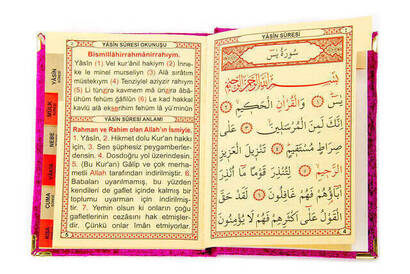 YÂSÎN SÛRESİ OKUNUŞU
Bismillâhirrahmânirrahıym.
Yâsîn (1) Vel kur'ânil hakiym (2) İnne-
ke le minel murseliyn (3) Alâ sırâtım
müstekıym (4) Tenziylel aziyzir rahıym
(5) Li tünzira kavmen mâ ünzira âbâ-
ühüm fehüm ğâfilûn (6) Le kad hakkal
kavlü alâ ekserihim fehüm lâ yü'minûn
YÂSÎN SÛRESİ ANLAMI
Rahman ve Rahim olan Allah'ın İsmiyle.
1. Yâsîn, 2. Hikmet dolu Kur'an hakkı
için, 3. Sen şüphesiz peygamberler-
densin. 4. Dosdoğru yol üzerindesin.
5. (Bu Kur'an) Gâlip ve çok merha-
metli Allah tarafından indirilmiştir. 6.
Babaları uyarılmamış, bu yüzden
kendileri de gaflet içinde kalmış bir
toplumu uyarman için indirilmiştir.
7. Yemin olsun ki onların çoğu
gafletlerinin cezasını hak etmişler-
dir. Çünkü onlar İman etmiyorlar.
YÂSÎN
MÜLK
NEBE
VAKIA
CUMA
KISA
YÂSÎN SÛRESİ
سُورَةُ يٰسٓ
بِسْمِ اللّٰهِ الرَّحْمٰنِ الرَّحِيمِ
يٰسٓ ﴿١﴾ وَالْقُرْاٰنِ الْحَكِيمِ ﴿٢﴾
اِنَّكَ لَمِنَ الْمُرْسَلِينَ ﴿٣﴾ عَلٰى
صِرَاطٍ مُسْتَقِيمٍ ﴿٤﴾ تَنْزِيلَ الْعَزِيزِ
الرَّحِيمِ ﴿٥﴾ لِتُنْذِرَ قَوْمًا مَٓا اُنْذِرَ
اٰبَٓاؤُهُمْ فَهُمْ غَافِلُونَ ﴿٦﴾ لَقَدْ حَقَّ
الْقَوْلُ عَلٰٓى اَكْثَرِهِمْ فَهُمْ لَا يُؤْمِنُونَ